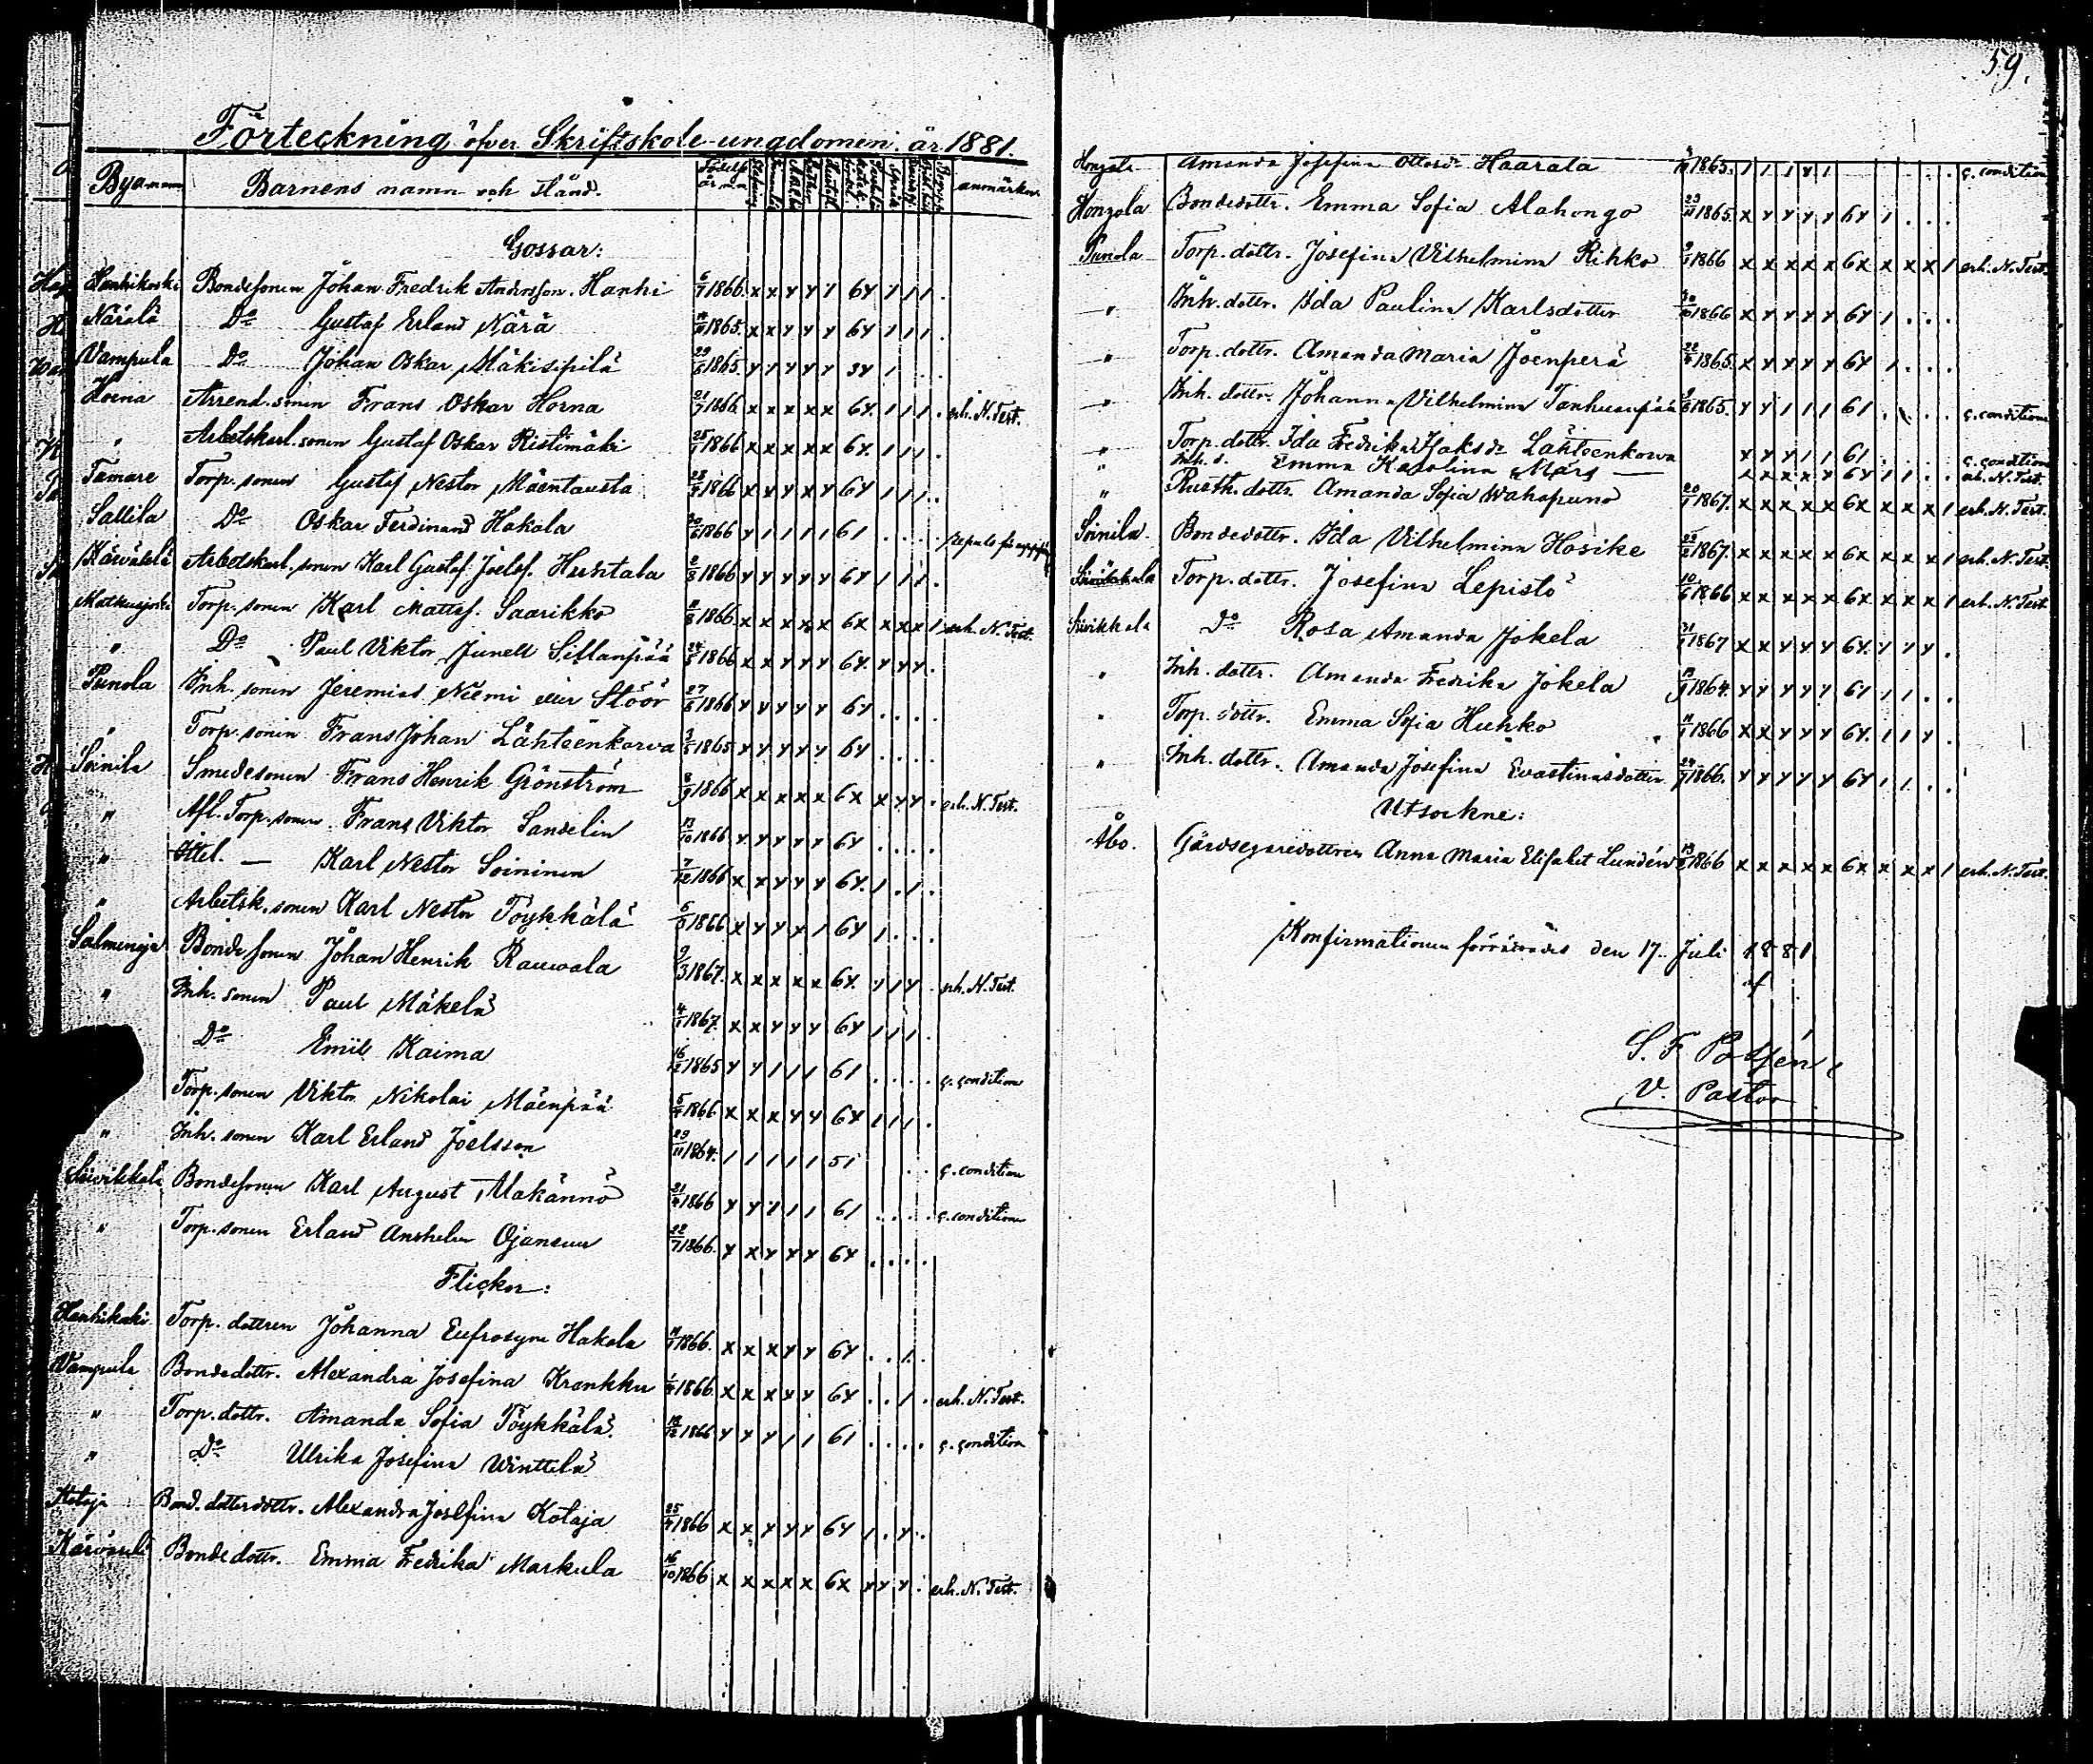 Förteckning öfver Skriftskole-ungdomen år 1881.
Byanamn Barnens namn och stånd. anmärkn.
Gossar:
Hanhikoski Bondesonen Johan Fredrik Andersson Hanhi 6/7 1866. x x y y y 6y 1 1 1 .
Närälä Do Gustaf Erland Närä 1865. x x y y y 6y 1 1 1 .
Vampula Do Johan Oskar Mäkisipilä 1865. y y y y y 3y 1 . .
Horna Arrend. sonen Frans Oskar Horna 21/7 1866. x x x x x 6y. 1 1 1 . erh. N. Test.
" Arbetskarl. sonen Gustaf Oskar Ristimäki 25/7 1866 x x x x x 6y. 1 1 1 .
Tamare Torp. sonen Gustaf Nestor Mäentausta 1866 x x y x y 6y 1 1 1 .
Sallila Do Oskar Ferdinand Hakala 1866 y 1 1 1 1 61 . . . .
Kärväselä Arbetskarl. sonen Karl Gustaf Joelsf. Huhtala 1866 y y y y y 6y 1 1 1 .
Matkusjoki Torp. sonen Karl Mattsf. Saarikko 1866. x x x x x 6x x x x 1 erh. N. Test.
" Do Paul Viktor Junell Sillanpää 1866 x x y y y 6y. y y y .
Punola Inh. sonen Jeremias Niemi eller Stöör 1866 y y y y y 6y . . . .
" Torp. sonen Frans Johan Lähteenkorva 1865 y y y y y 6y . . . .
Soinila Smedesonen Frans Henrik Grönström 8/9 1866 x x x x x 6x x y y . erh. N. Test.
" Afl. Torp. sonen Frans Viktor Sandelin 13/10 1866 y y y y y 6y . . . .
" — Karl Nestor Soininen 7/12 1866 x x y y y 6y. 1 . 1 .
" Arbetsk. sonen Karl Nestor Töykkälä 1866 x y y x 1 6y 1 . . .
Salmenoja Bondesonen Johan Henrik Rauwala 9/3 1867. x x x x x 6y. y 1 y . erh. N. Test.
" Inh. sonen Paul Mäkelä 4/1 1867. x x y y y 6y 1 1 1 .
Do Emil Kaima 16/12 1865 y y 1 1 1 61 . . . . c. condition
Torp. sonen Viktor Nikolai Mäenpää 1866 x x x y y 6y 1 1 1 .
" Inh. sonen Karl Erland Joelsson 29/11 1864. 1 1 1 1 1 51 . . c. condition
Soivikkala Bondesonen Karl August Alakännö 1866 y y 1 1 1 61 . . . . c. condition
" Torp. sonen Erland Anshelm Ojansuu 22/7 1866. y x y y y 6y . . . .
Flickor:
Hanhikoski Torp. dottren Johanna Eufrosyne Hakala 1866. x x x y y 6y . . 1 .
Vampula Bondedottr. Alexandra Josefina Krenkku 1866 x x x y y 6y . . 1 . erh. N. Test.
" Torp. dottr. Amanda Sofia Töykkälä. 1866 y y y 1 1 61 . . . . c. condition
" Do Ulrika Josefina Winttelä
Kotaja Bond. dotterdottr. Alexandra Josefina Kotaja 1866 x x y y y 6y 1 . y .
Kärväselä Bondedottr. Emma Fedrika Markula 16/10 1866 x x x x x 6x y y y . erh. N. Test.
59.
Hongola Amanda Josefina Ottosdr Haarala 1865. 1 1 1 y 1 . . . c. condition
Hongola Bondedottr. Emma Sofia Alahongo 23/11 1865. x y y y y 6y 1 . . .
Punola Torp. dottr. Josefina Vilhelmina Rihko 1866 x x x x x 6x x x x 1 erh. N. Test.
" Inh. dottr. Ida Paulina Karlsdotter 1866 x y y y y 6y 1 . . .
" Torp. dottr. Amanda Maria Joenperä 1865. x y y y y 6y 1 . . .
" Inh. dottr. Johanna Vilhelmina Tanhuanpää 1865. y y 1 1 1 61 . . . c. condition
" Torp. dottr. Ida Fredrika Isaksdr Lähteenkorva y y y 1 1 61 . . . c. condition
" Inh. d. Emma Karolina Mars — x x x x y 6y 1 1 . . erh. N. Test.
" Rusth. dottr. Amanda Sofia Wahapuno 1867. x x x x x 6x x x x 1 erh. N. Test.
Soinila Bondedottr. Ida Vilhelmina Hosike 1867. x x x x x 6x x x x 1 erh. N. Test.
Torp. dottr. Josefina Lepistö 10/6 1866 x x x x x 6x x x x 1 erh. N. Test.
Soivikkala Do Rosa Amanda Jokela 1867 x x y y y 6y. y y y .
" Inh. dottr. Amanda Fredrika Jokela 1864. y y y y y 6y 1 1 . .
" Torp. dottr. Emma Sofia Huhko 1866 x x y y y 6y. 1 1 y .
" Inh. dottr. Amanda Josefina Evastinasdotter 1866. y y y y y 6y 1 1 . .
Utsockne:
Åbo. Gårdsegaredottren Anna Maria Elisabet Lundén 1866 x x x x x 6x x x x 1 erh. N. Test.
Konfirmationen förrättades den 17. Juli 1881
af
V. Pastor